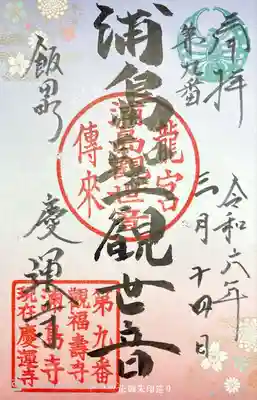 奉拝
第九番
令和六年
三月十四日
浦島観世音
龍宮
浦島観世音
傳来
飯田町
慶運寺
第九番
観福壽寺
浦島寺
現在慶運寺
御朱印巡り